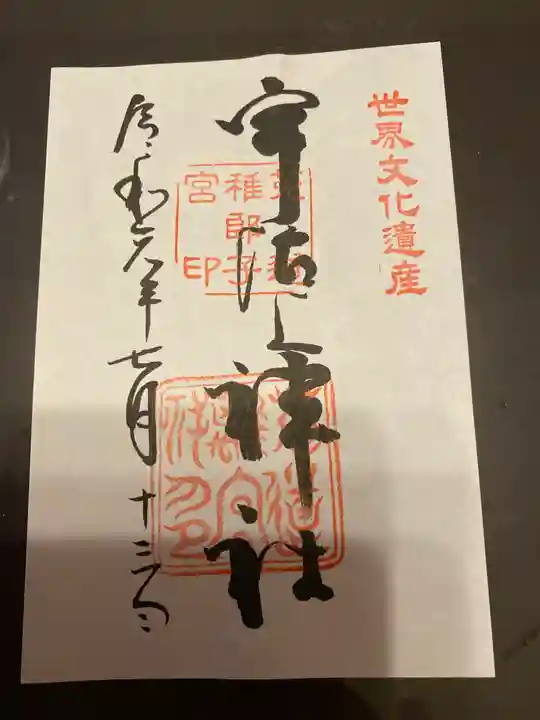 世界文化遺産
宇治上神社
菟道
稚郎子
宮印
令和六年七月十三日